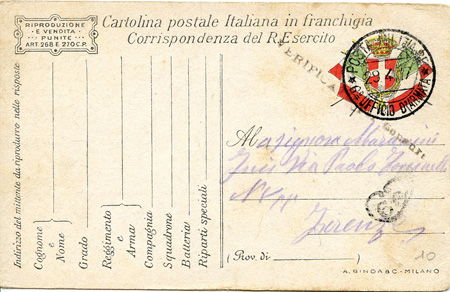 RIPRODUZIONE
E VENDITA
PUNITE
ART. 268 E 270 C.P.
Cartolina postale Italiana in franchigia
Corrispondenza del R. Esercito
VERIFICA
POSTA MILITARE
29.4
6ª UFFICIO D'ARMATA
Indirizzo del mittente da riprodurre nelle risposte
Cognome e Nome
Grado
Reggimento e Arma
Compagnia
Squadrone
Batteria
Riparti speciali
Alla signora
Via Paolo
Firenze
(Prov. di )
10
A. BINDA & C. - MILANO